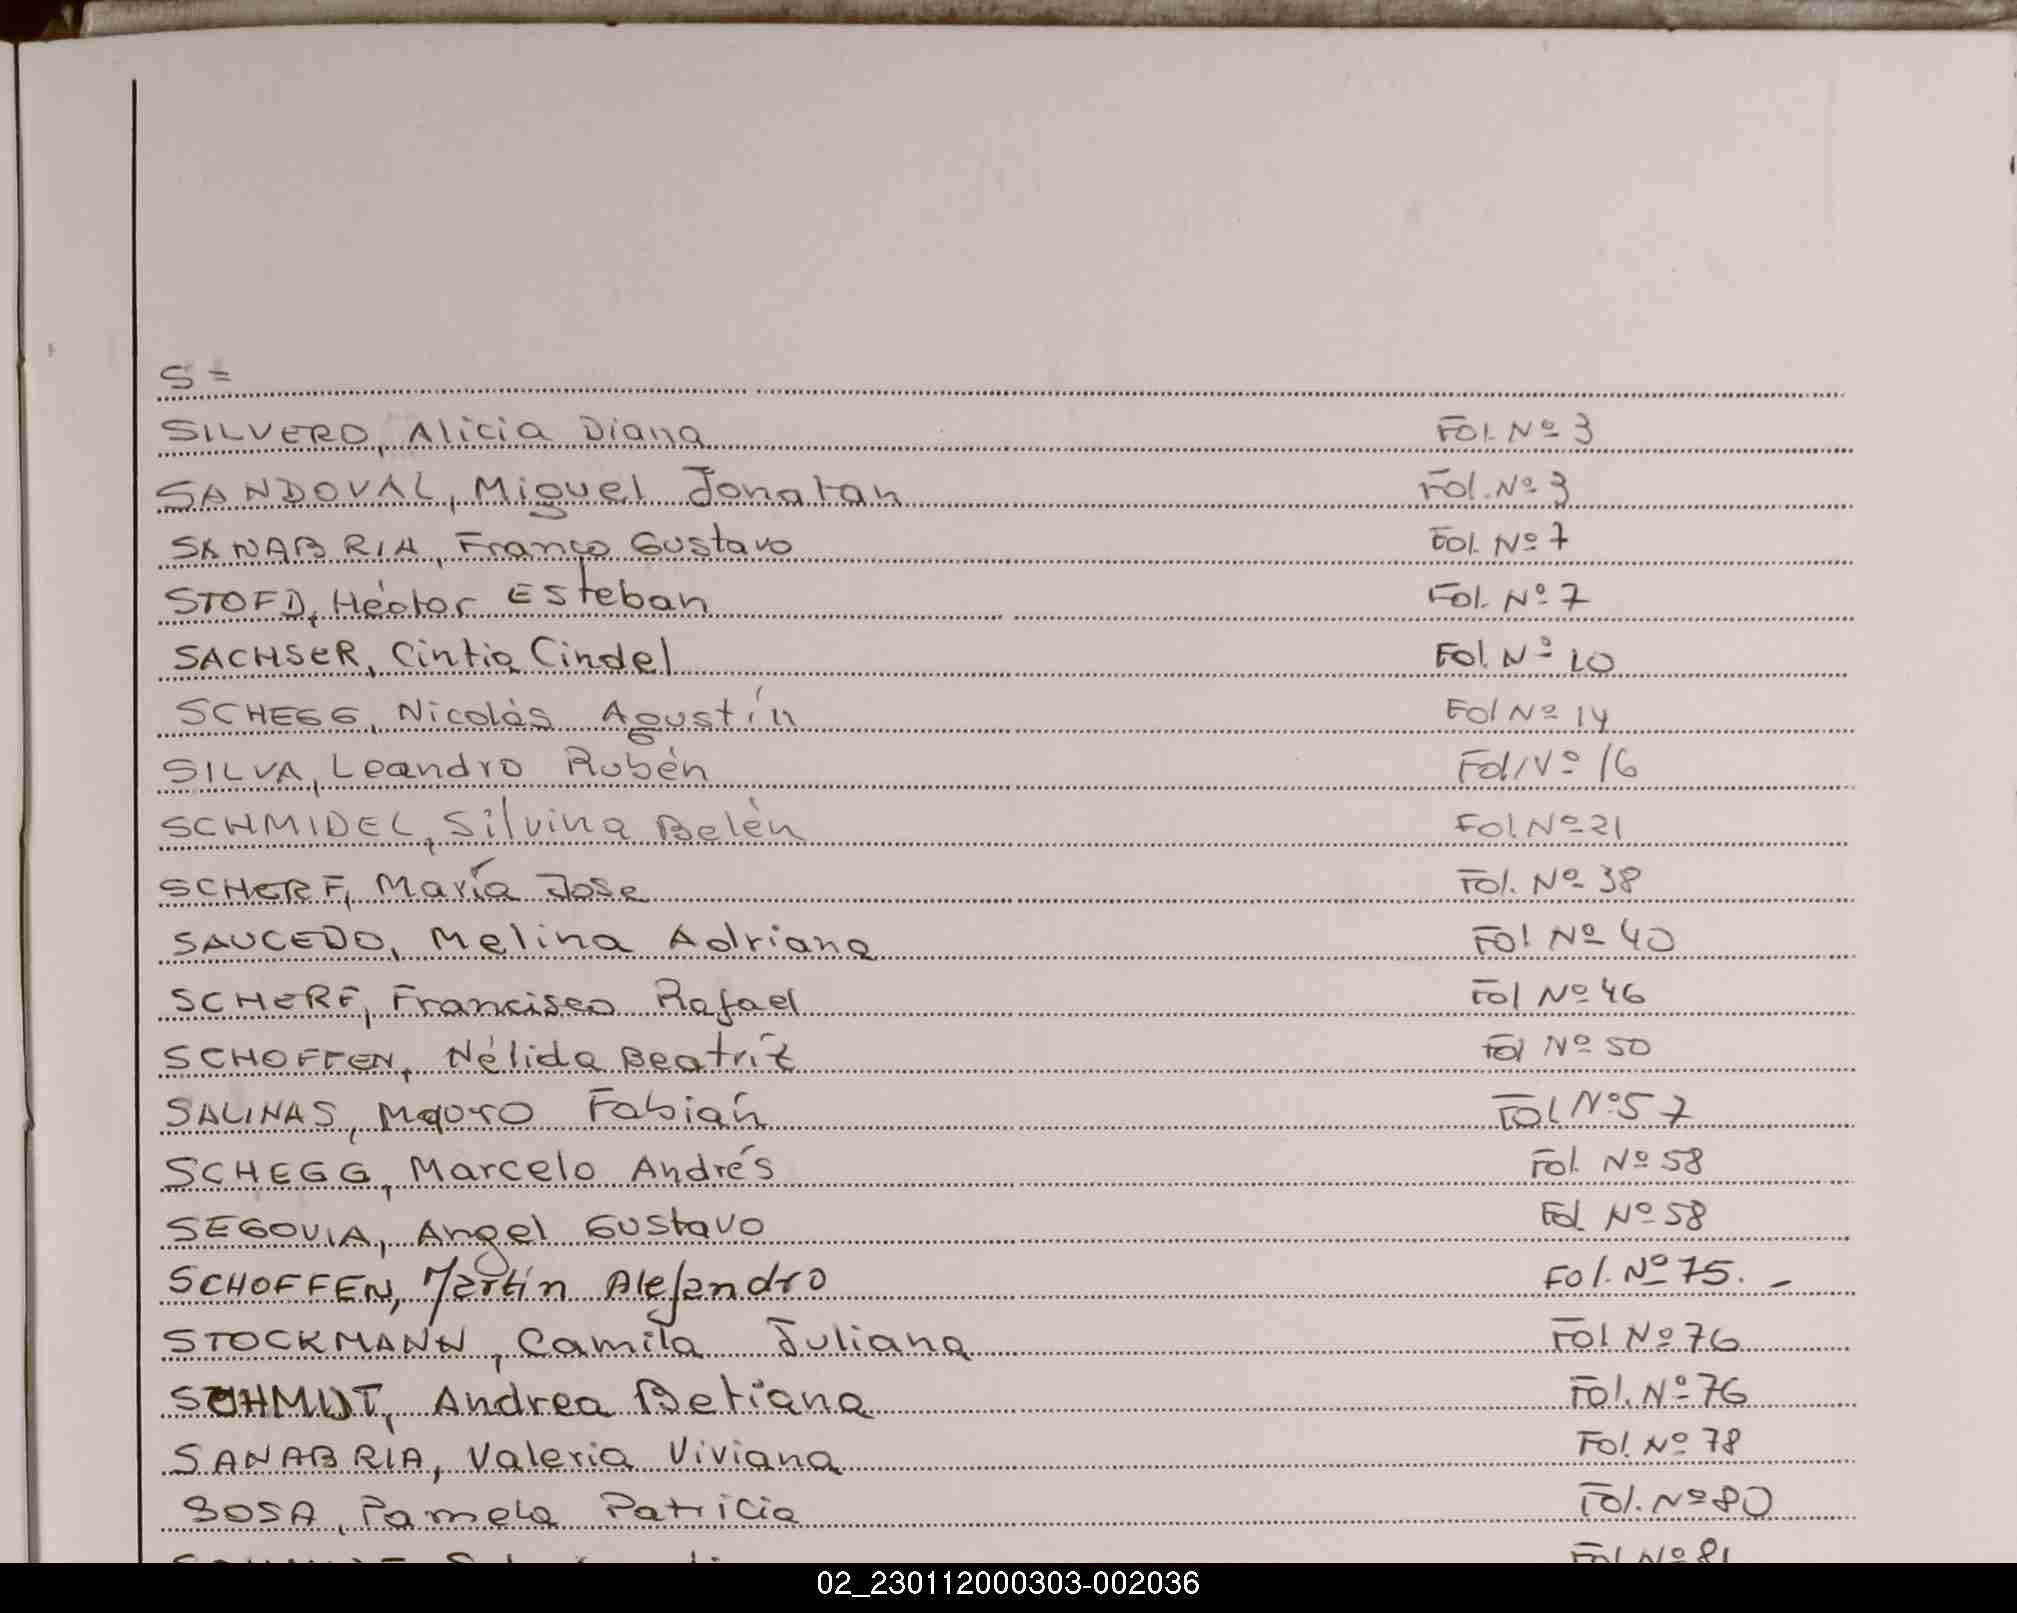 S =
SILVERO, Alicia Diana Fol. Nº 3
SANDOVAL, Miguel Jonatan Fol. Nº 3
SANABRIA, Franco Gustavo Fol. Nº 7
STOFD, Héctor Esteban Fol. Nº 7
SACHSER, Cintia Cindel Fol. Nº 10
SCHEGG, Nicolás Agustín Fol Nº 14
SILVA, Leandro Rubén Fol Nº 16
SCHMIDEL, Silvina Belén Fol Nº 21
SCHERF, María Jose Fol. Nº 38
SAUCEDO, Melina Adriana Fol Nº 40
SCHERF, Francisco Rafael Fol Nº 46
SCHOFFEN, Nélida Beatríz Fol Nº 50
SALINAS, Mauro Fabián Fol Nº 57
SCHEGG, Marcelo Andrés Fol. Nº 58
SEGOVIA, Angel Gustavo Fol. Nº 58
SCHOFFEN, Martín Alejandro Fol. Nº 75. -
STOCKMANN, Camila Juliana Fol Nº 76
SCHMIDT, Andrea Betiana Fol. Nº 76
SANABRIA, Valeria Viviana Fol. Nº 78
SOSA, Pamela Patricia Fol. Nº 80
Fol Nº 81
02_230112000303-002036